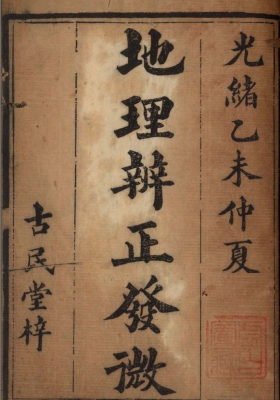 光緒乙未仲夏
地理辨正發微
古民堂梓